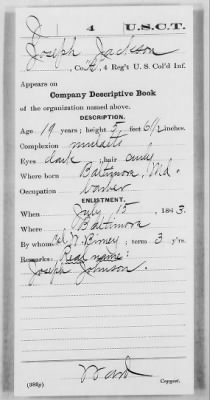 4 U.S.C.T.
Joseph Jackson
, Co. A, 4 Reg't U. S. Col'd Inf.
Appears on
Company Descriptive Book
of the organization named above.
DESCRIPTION.
Age 19 years; height 5 feet 6½ inches.
Complexion mulatto
Eyes dark ; hair curly
Where born Baltimore, Md.
Occupation barber
ENLISTMENT.
When July 15 , 1863.
Where Baltimore
By whom Col. W. Birney ; term 3 y'rs.
Remarks: Real name:
Joseph Johnson.
Ward
(383g) Copyist.